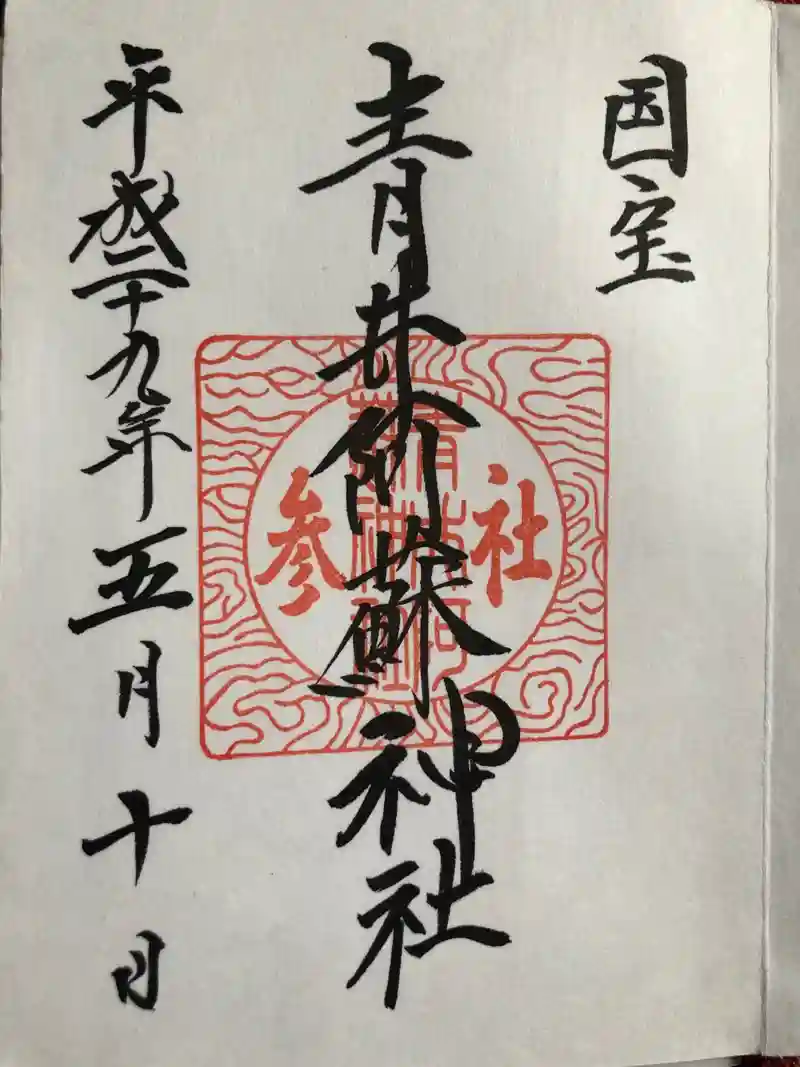 国宝
青井阿蘇神社
社参
青井阿蘇神社
平成二十九年五月十日